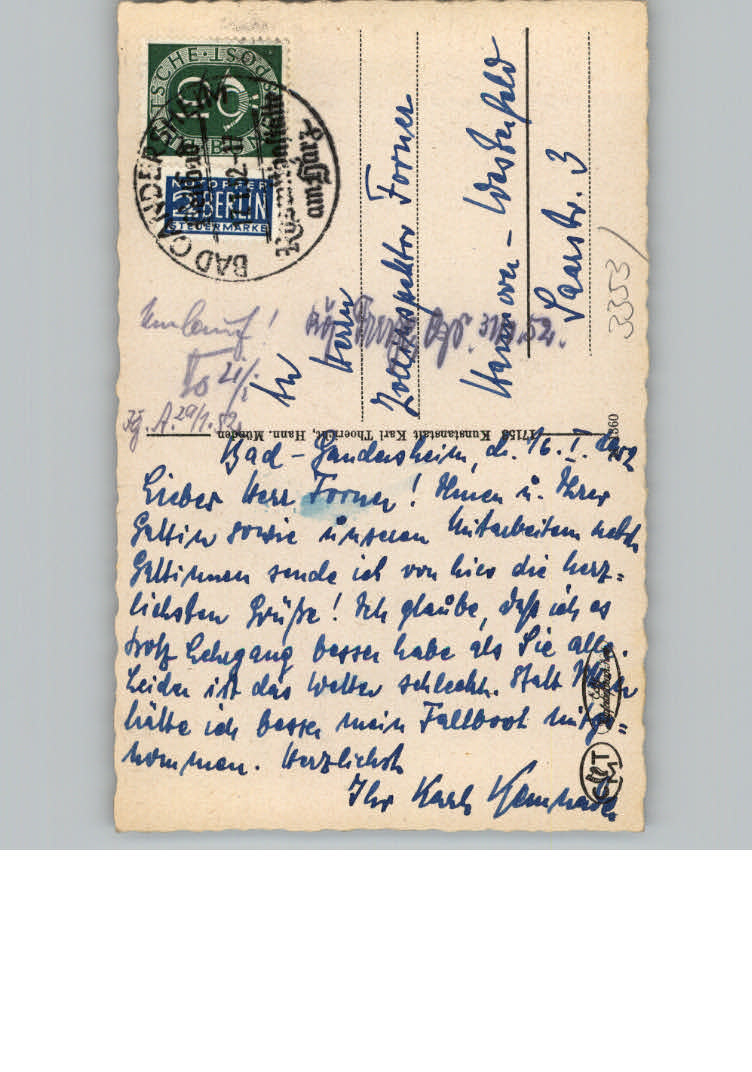 DEUTSCHE · POST
10
BAD GANDERSHEIM
17.1.52-17
am Harz
NOTOPFER
2 BERLIN
STEUERMARKE
An
Herrn
Zollinspektor Forner
Hannover - Westerfeld
Saarstr. 3
3353
Umlauf!
31.1.52.
21/1
29/1. 52
17153 Kunstanstalt Karl Thoericht, Hann. Münden
Bad - Gandersheim, d. 16. I. 1952
Lieber Herr Forner! Ihnen u. Ihrer
Gattin sowie unseren Mitarbeitern nebst
Gattinnen sende ich von hier die herz=
lichsten Grüße! Ich glaube, daß ich es
trotz Lehrgang besser habe als Sie alle.
Leider ist das Wetter schlecht. Statt
hätte ich besser mein Faltboot mitge=
nommen. Herzlichst
Ihr Karl